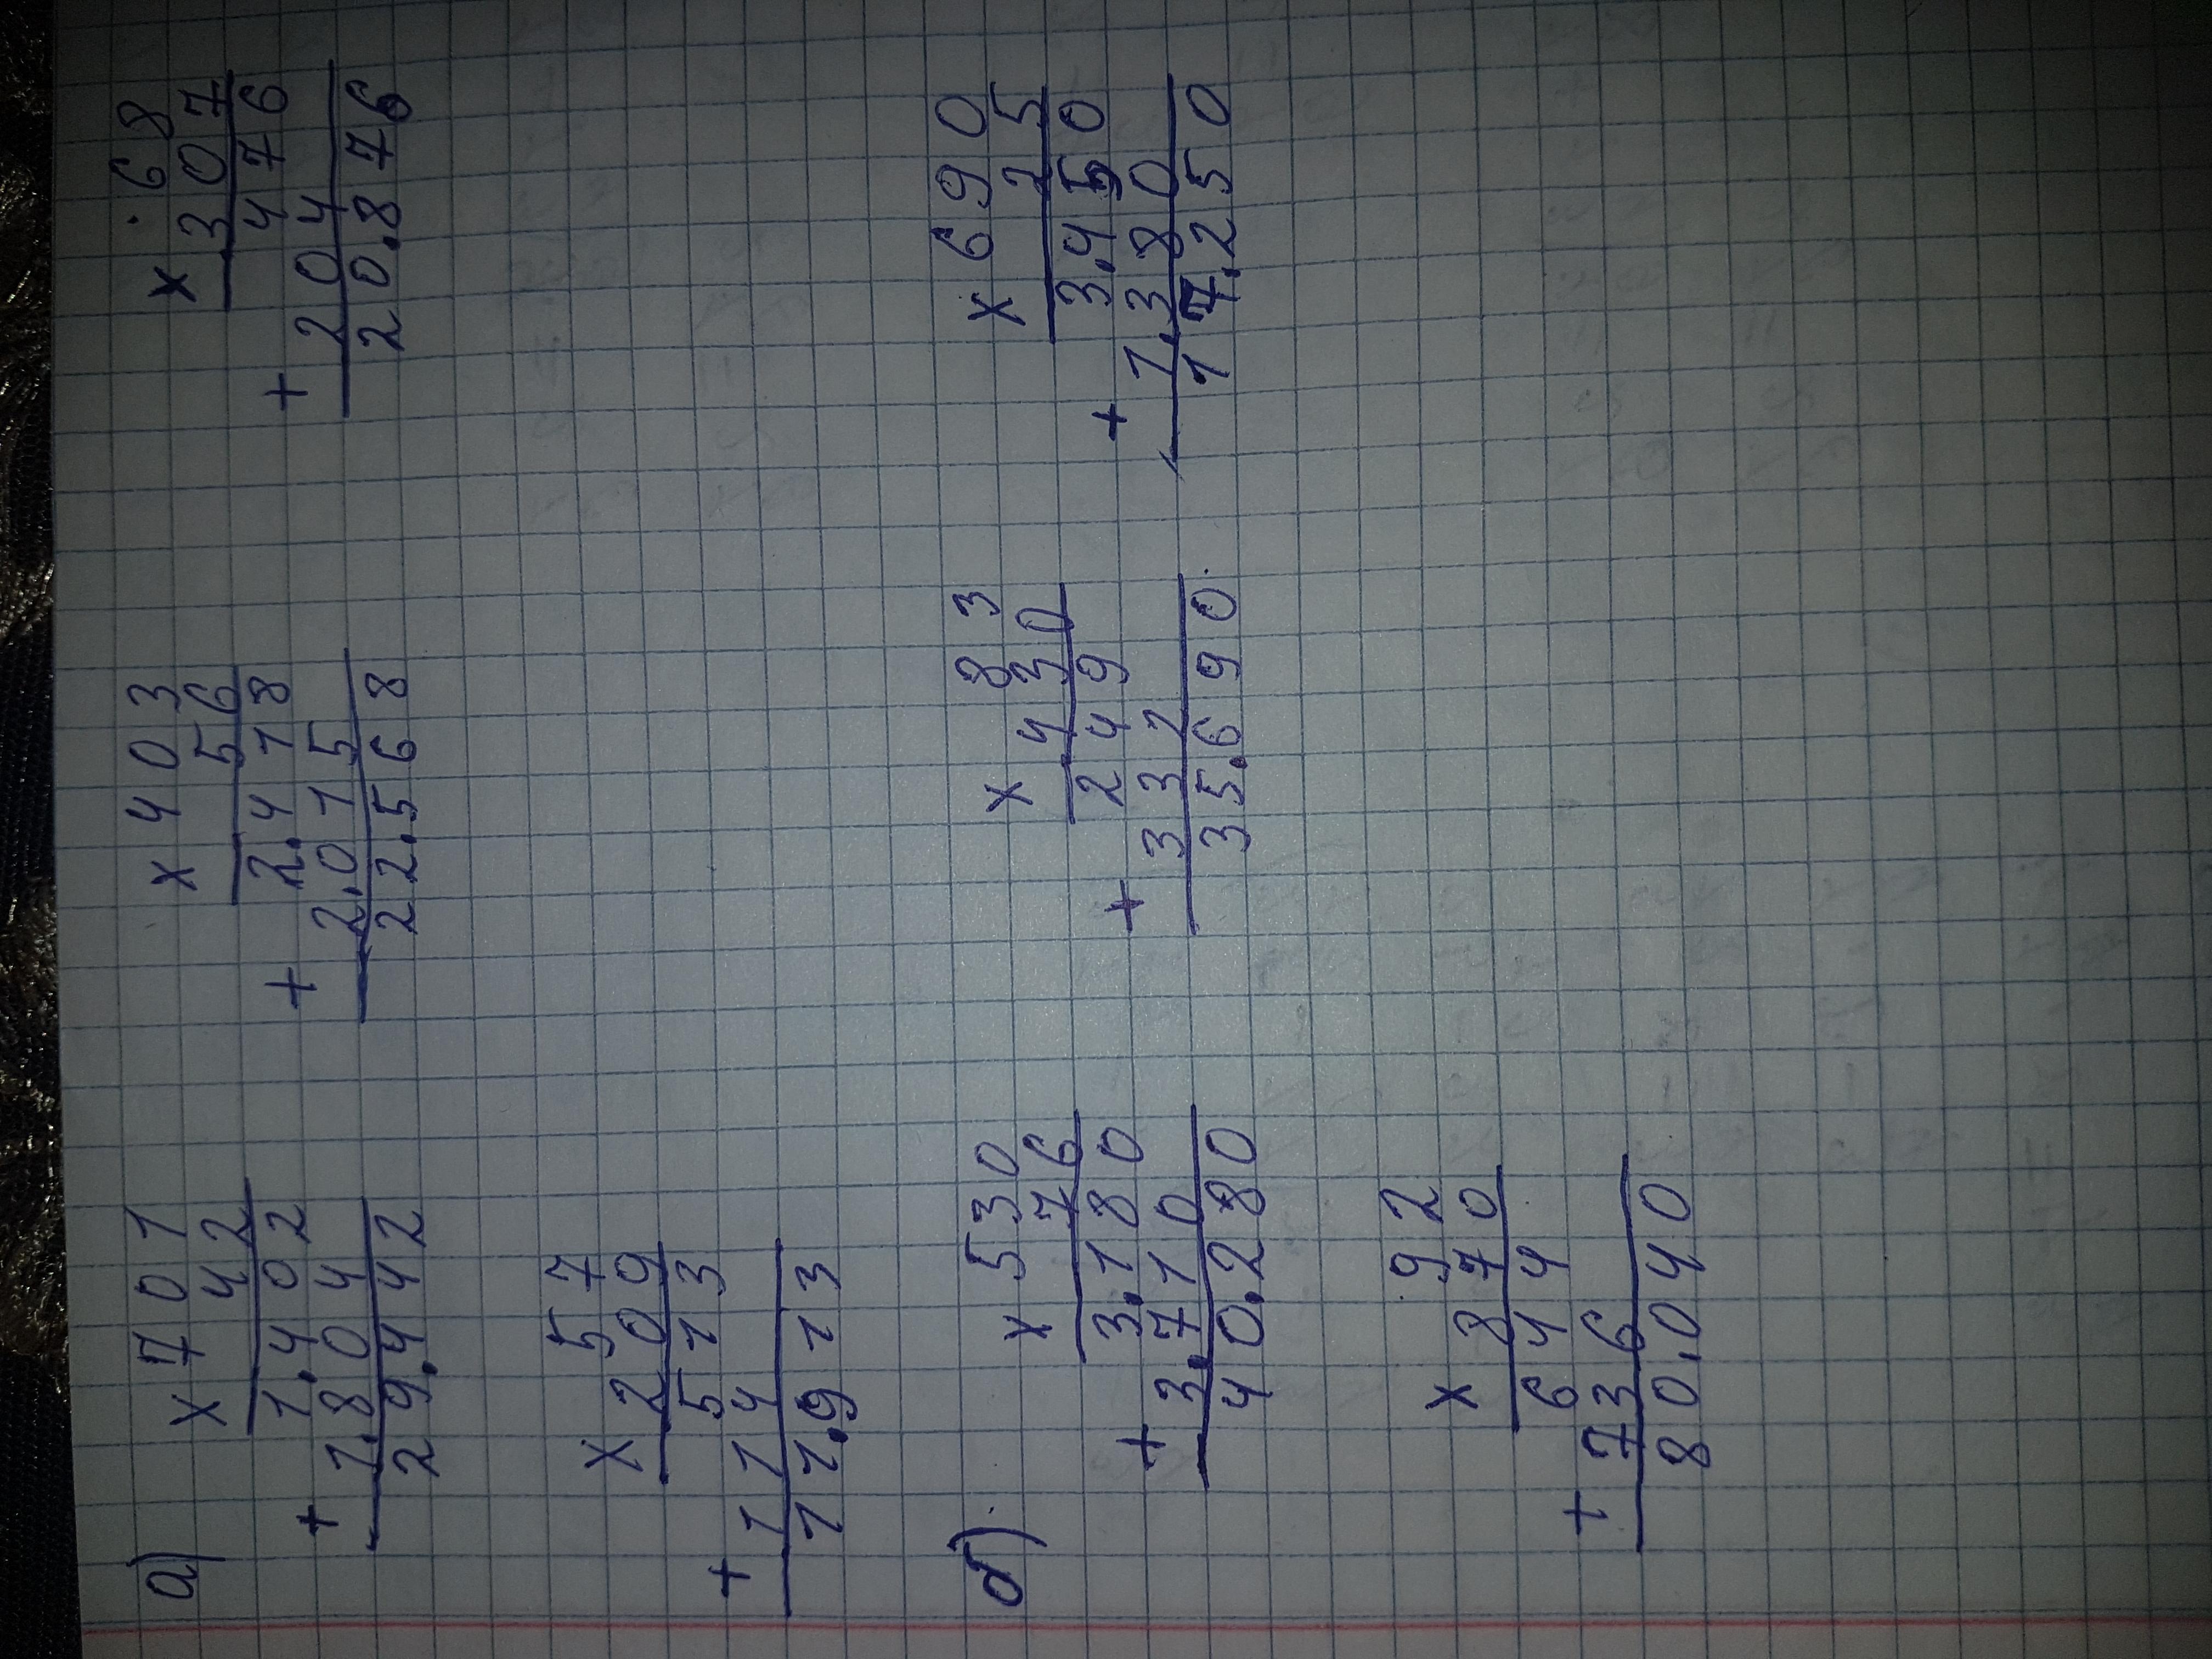 а)
× 701
42
1.402
+ 1.804
29.442
× 403
56
2.418
+ 2.015
22.568
× 68
307
476
+ 204
20.876
× 57
209
513
+ 114
11.913
б)
× 530
76
3.180
+ 3.710
40.280
× 83
430
249
+ 332
35.690
× 690
25
3.450
+ 1.380
17.250
× 92
870
644
+ 736
80.040